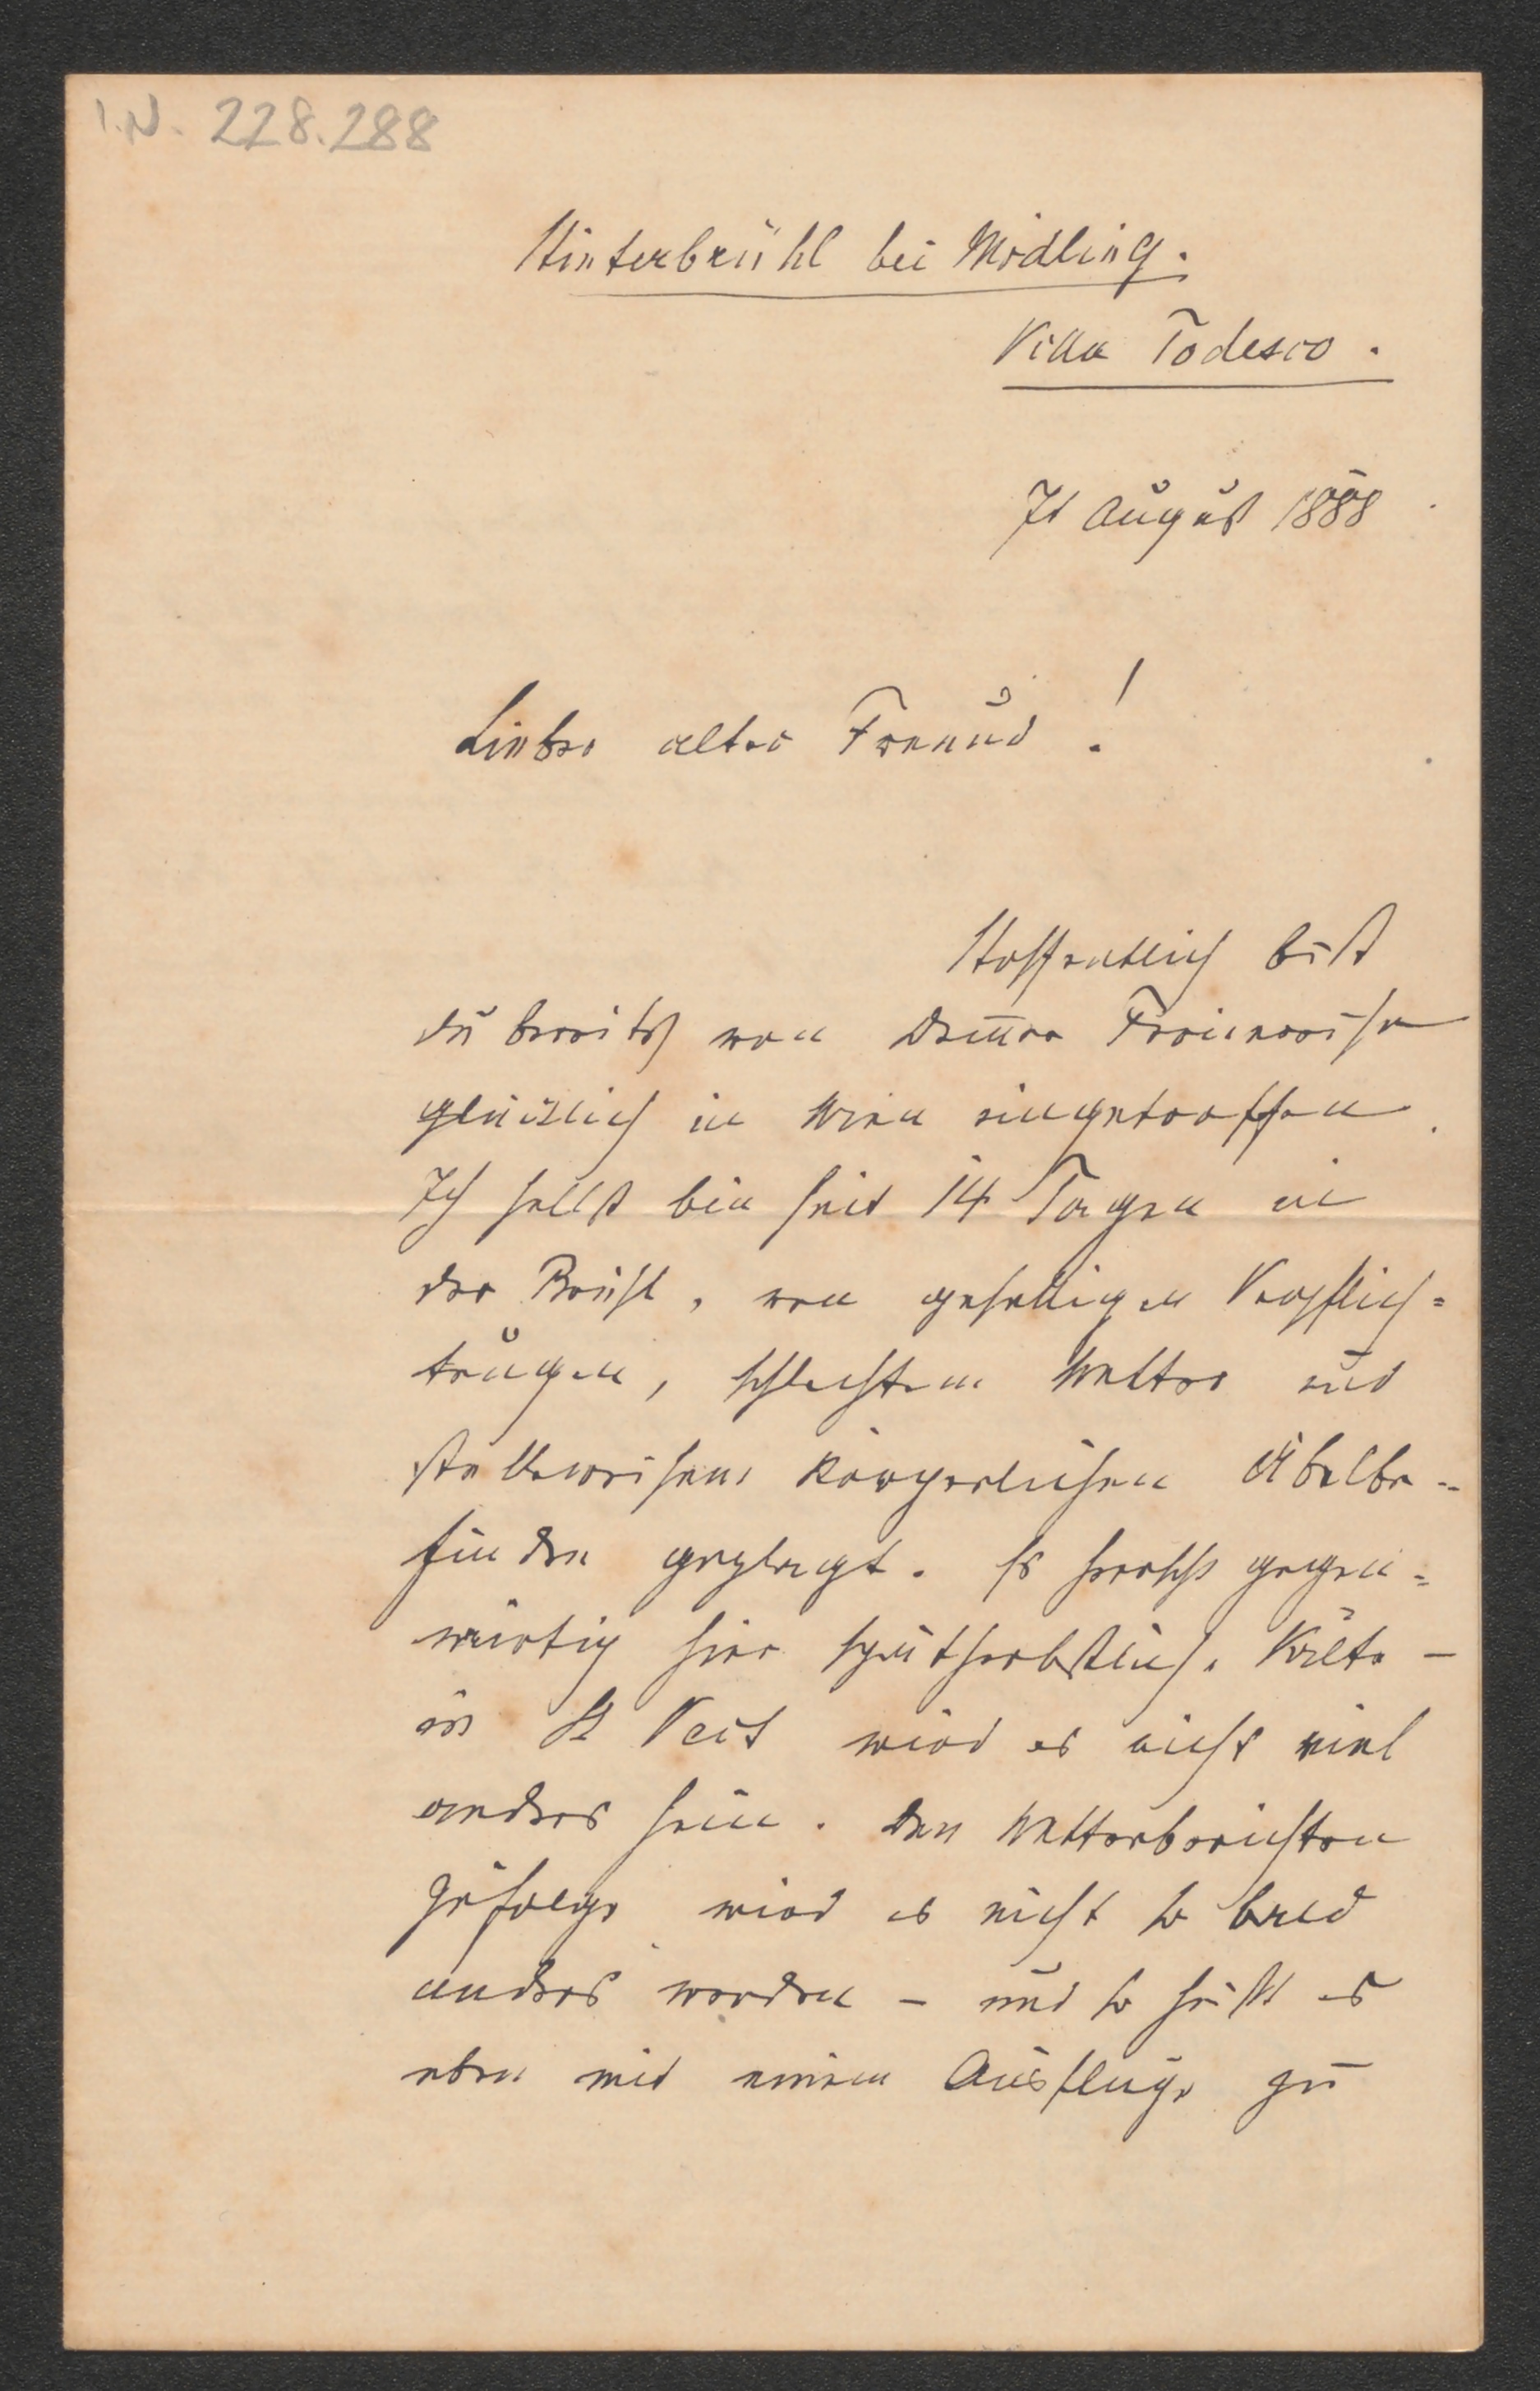 I.N. 228.288
Hinterbrühl bei Mödling.
Villa Todesco.
7t August 1888
Lieber alter Freund!
Hoffentlich bist
du bereits von Deiner Ferienreise
glücklich in Wien eingetroffen.
Ich selbst bin seit 14 Tagen in
der Brühl, von geselligen Verpflich=
tungen, schlechtem Wetter und
stellenweisem körperlichen Übelbe-
finden geplagt. Es herrscht gegen=
wärtig hier spätherbstliche Kälte –
in St Veit wird es nicht viel
anders sein. Den Wetterberichten
zufolge wird es nicht so bald
anders werden – und so heißt es
eben mit einem Ausfluge zu